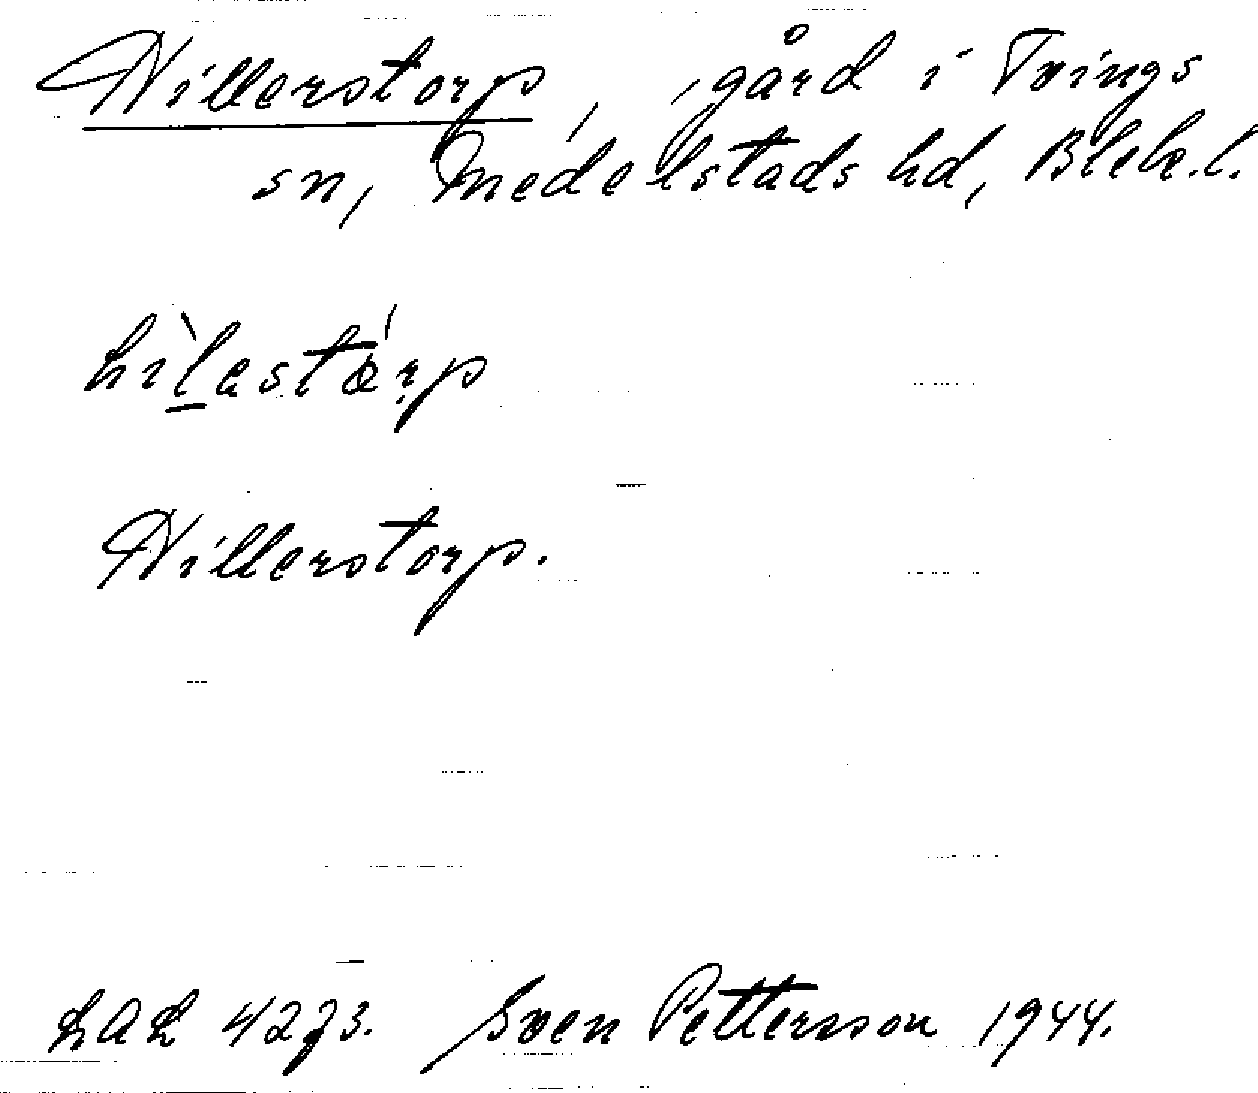 Hillerstorp, gård i Tvings
sn, Medelstads hd, Blek.l.
hìlastárp
Hillerstorp.
LAL 4273. Sven Pettersson 1944.